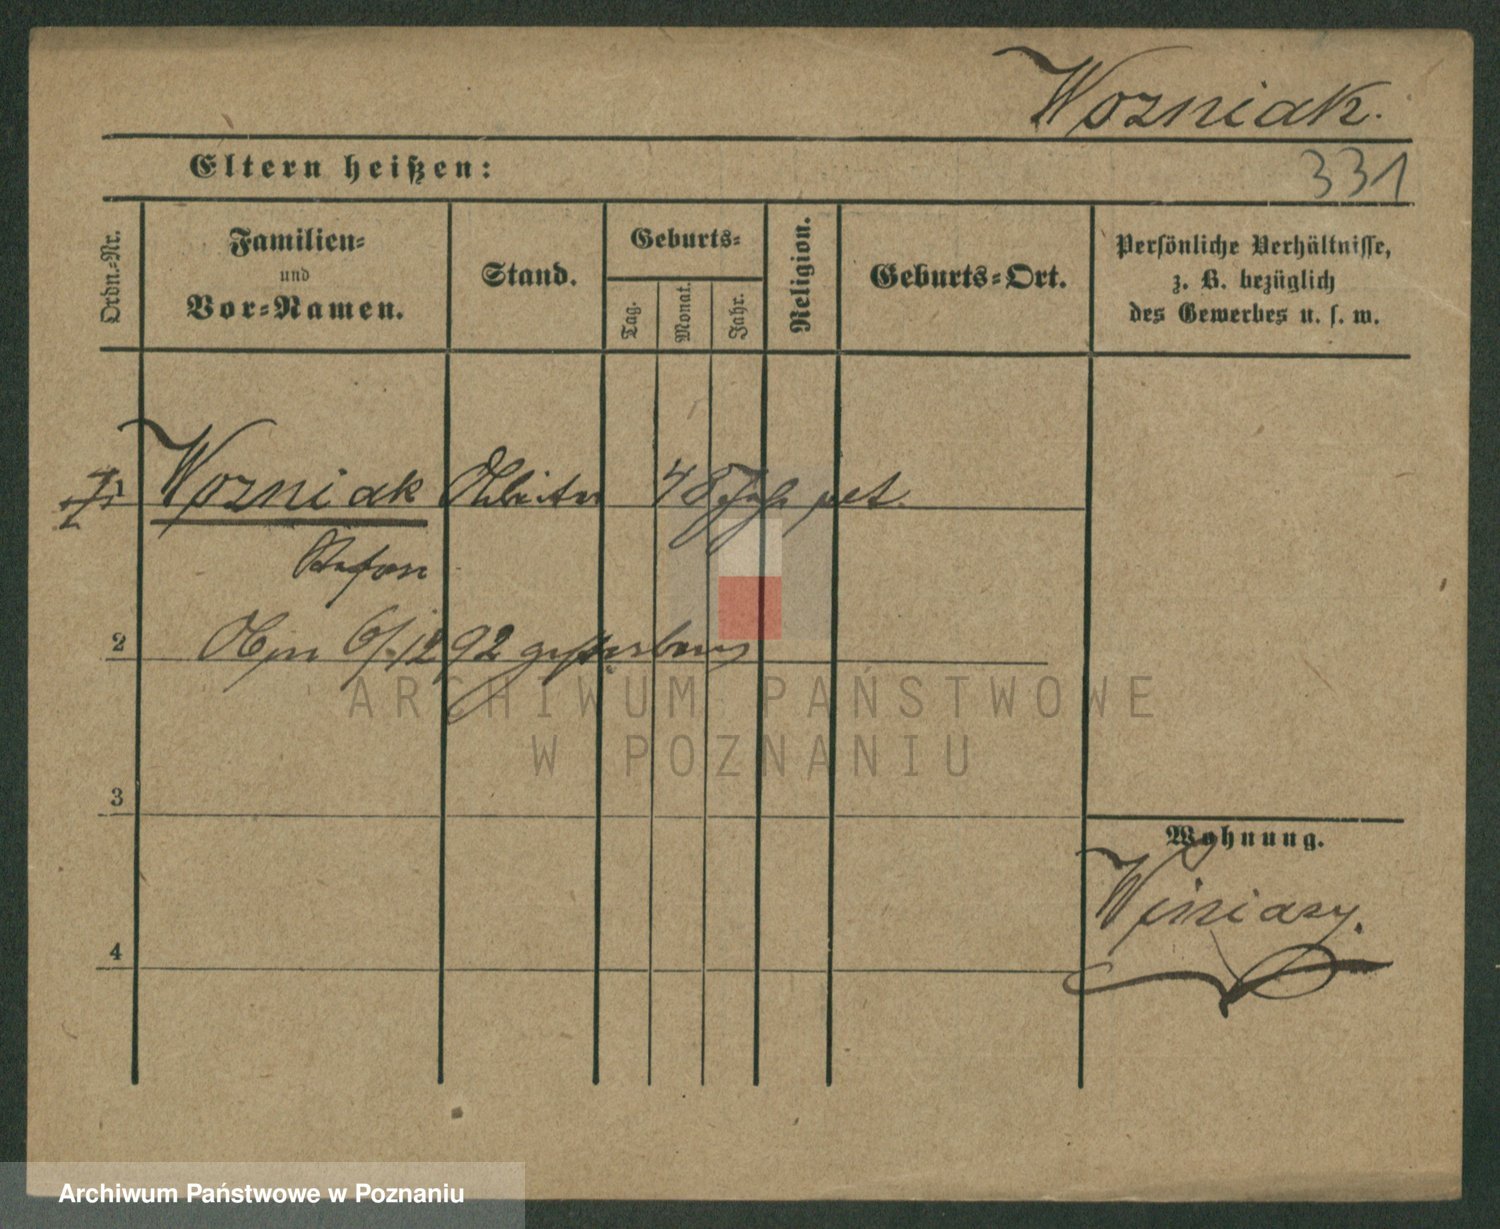 Wozniak.
331
Eltern heißen:
Ordn.-Nr.
Familien-
und
Vor-Namen.
Stand.
Geburts-
Tag.
Monat.
Jahr.
Religion.
Geburts-Ort.
Persönliche Verhältnisse,
z. B. bezüglich
des Gewerbes u. s. w.
1
Wozniak Arbeiter 48 Jahr alt.
Stefan
2
Am 6/12 92 gestorben
ARCHIWUM PAŃSTWOWE
W POZNANIU
3
Wohnung.
Winiary.
4
Archiwum Państwowe w Poznaniu